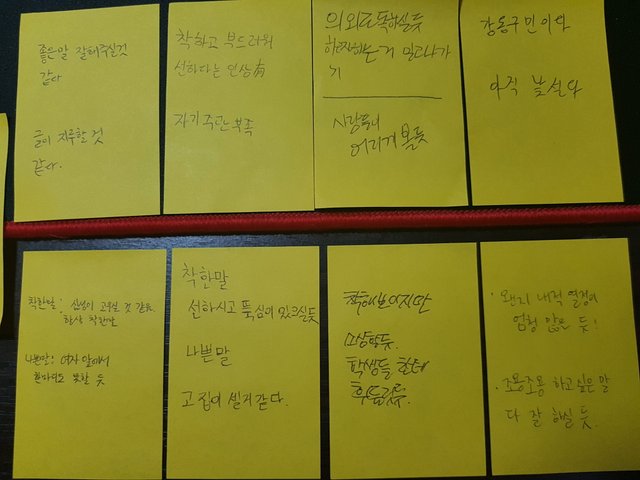 좋은말 잘해주실것
같다
글이 지루할 것
같다.
착하고 부드러워
선하다는 인상有
자기주관 부족
의외로 독하실듯
하는거 밀고나가
기
사람들이
어리게 볼듯
강동구민이와
아직 낯설와
착한말: 심성이 고우실 것 같음.
항상 착한말
나쁜말: 여자 앞에서
한마디도 못할 듯
착한말
선하시고 뚝심이 있으실듯
나쁜말
고집이 셀거 같다.
착해보이지만
학생들 한테
휘둘릴듯.
· 왠지 내적 열정이
엄청 많은 듯!
· 조용조용 하고 싶은 말
다 잘 하실 듯.